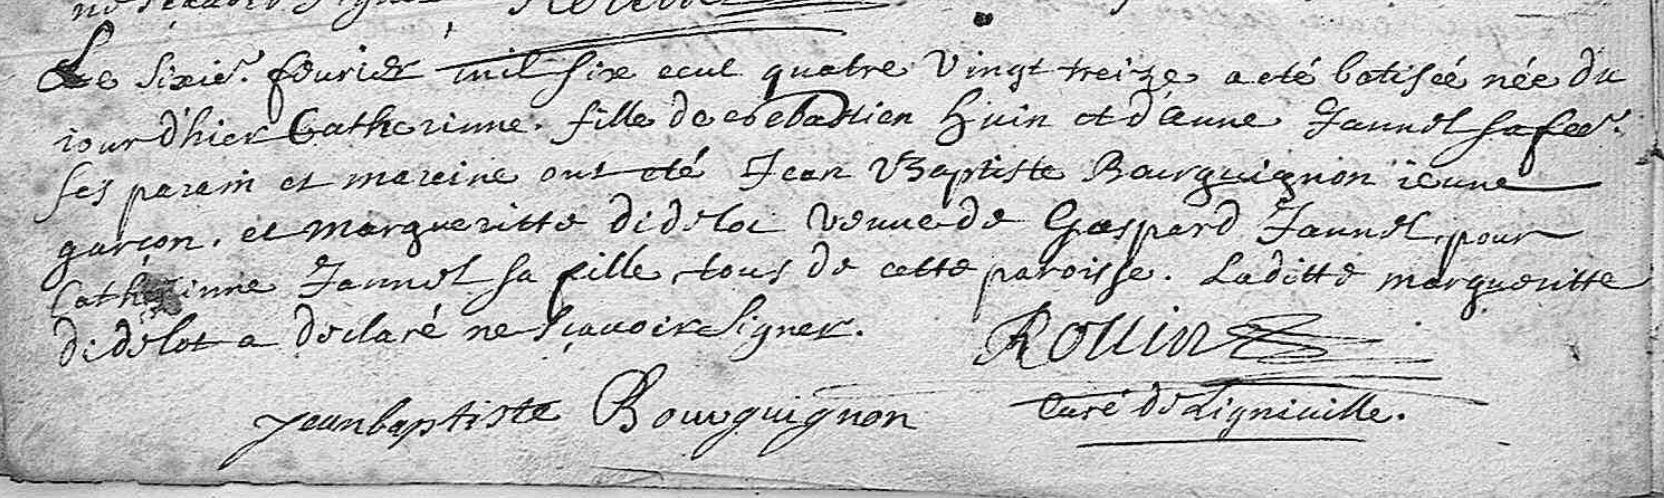 ne sçauoir signer Rollin
Le sixie. feurier mil six cent quatre vingt treize a eté batiseé née du
iour d'hier Catherinne. fille de Sebastien Huin et d'anne Jannel sa fee.
ses parain et mareine ont eté Jean Baptiste Bourguignon ieune
garçon. et margueritte didelot veuue de Gaspard Jannel, pour
Catherinne Jannel sa fille, tous de cette paroisse. Laditte margueritte
didelot a declaré ne sçauoir signer. Rollin
Jean baptiste Bourguignon Curé de Ligniuille.